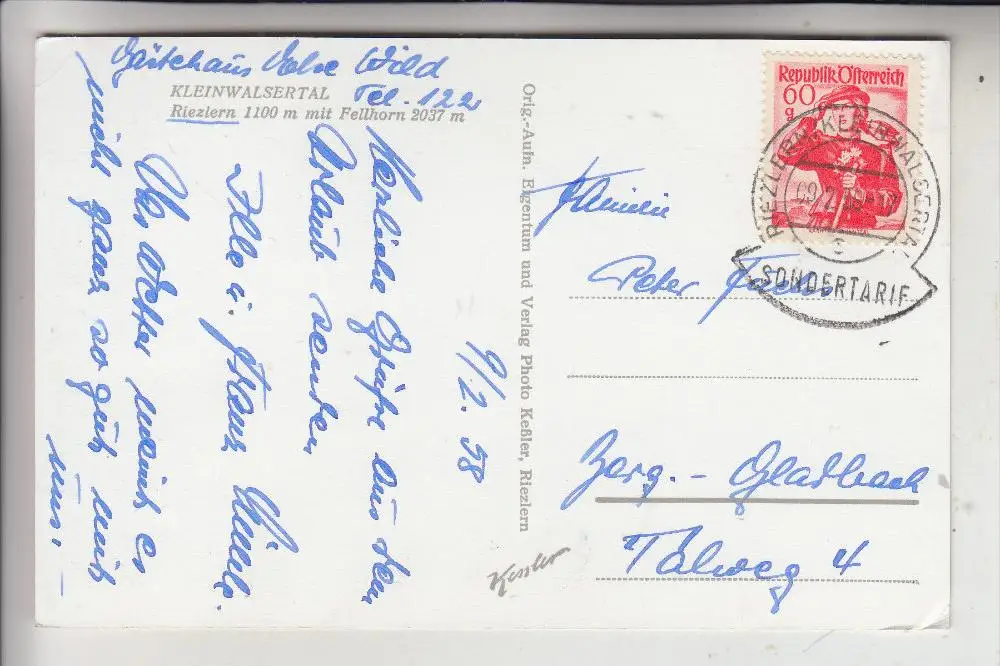 Gästehaus Wild
KLEINWALSERTAL
Tel. 122
Riezlern 1100 m mit Fellhorn 2037 m
9/2. 58
Herzliche Grüße aus dem
Urlaub senden
Ille u. Franz
Das Wetter meint es
nicht ganz so gut mit
uns.
Orig.-Aufn. Eigentum und Verlag Photo Keßler, Riezlern
Kessler
Republik Österreich
60
g
RIEZLERN, KLEINWALSERTAL
SONDERTARIF
Familie
Peter
Berg.- Gladbach
Talweg 4